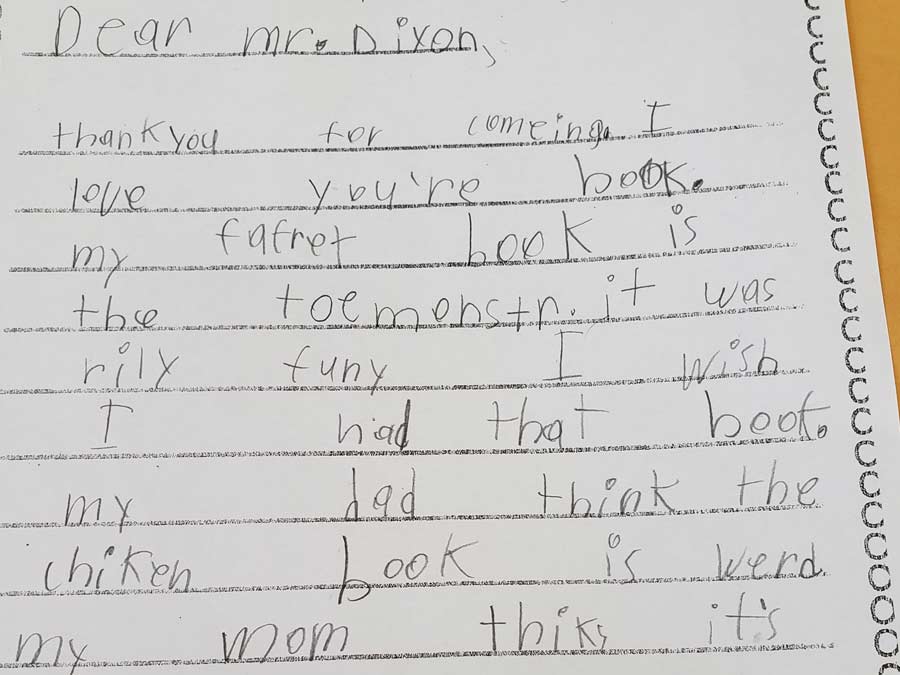 Dear mr. Dixon,
thank you for comeing. I
love you're book.
my fafret book is
the toe monstr. it was
rily funy I wish
I had that book.
my dad think the
chiken book is werd.
my mom thiks it's